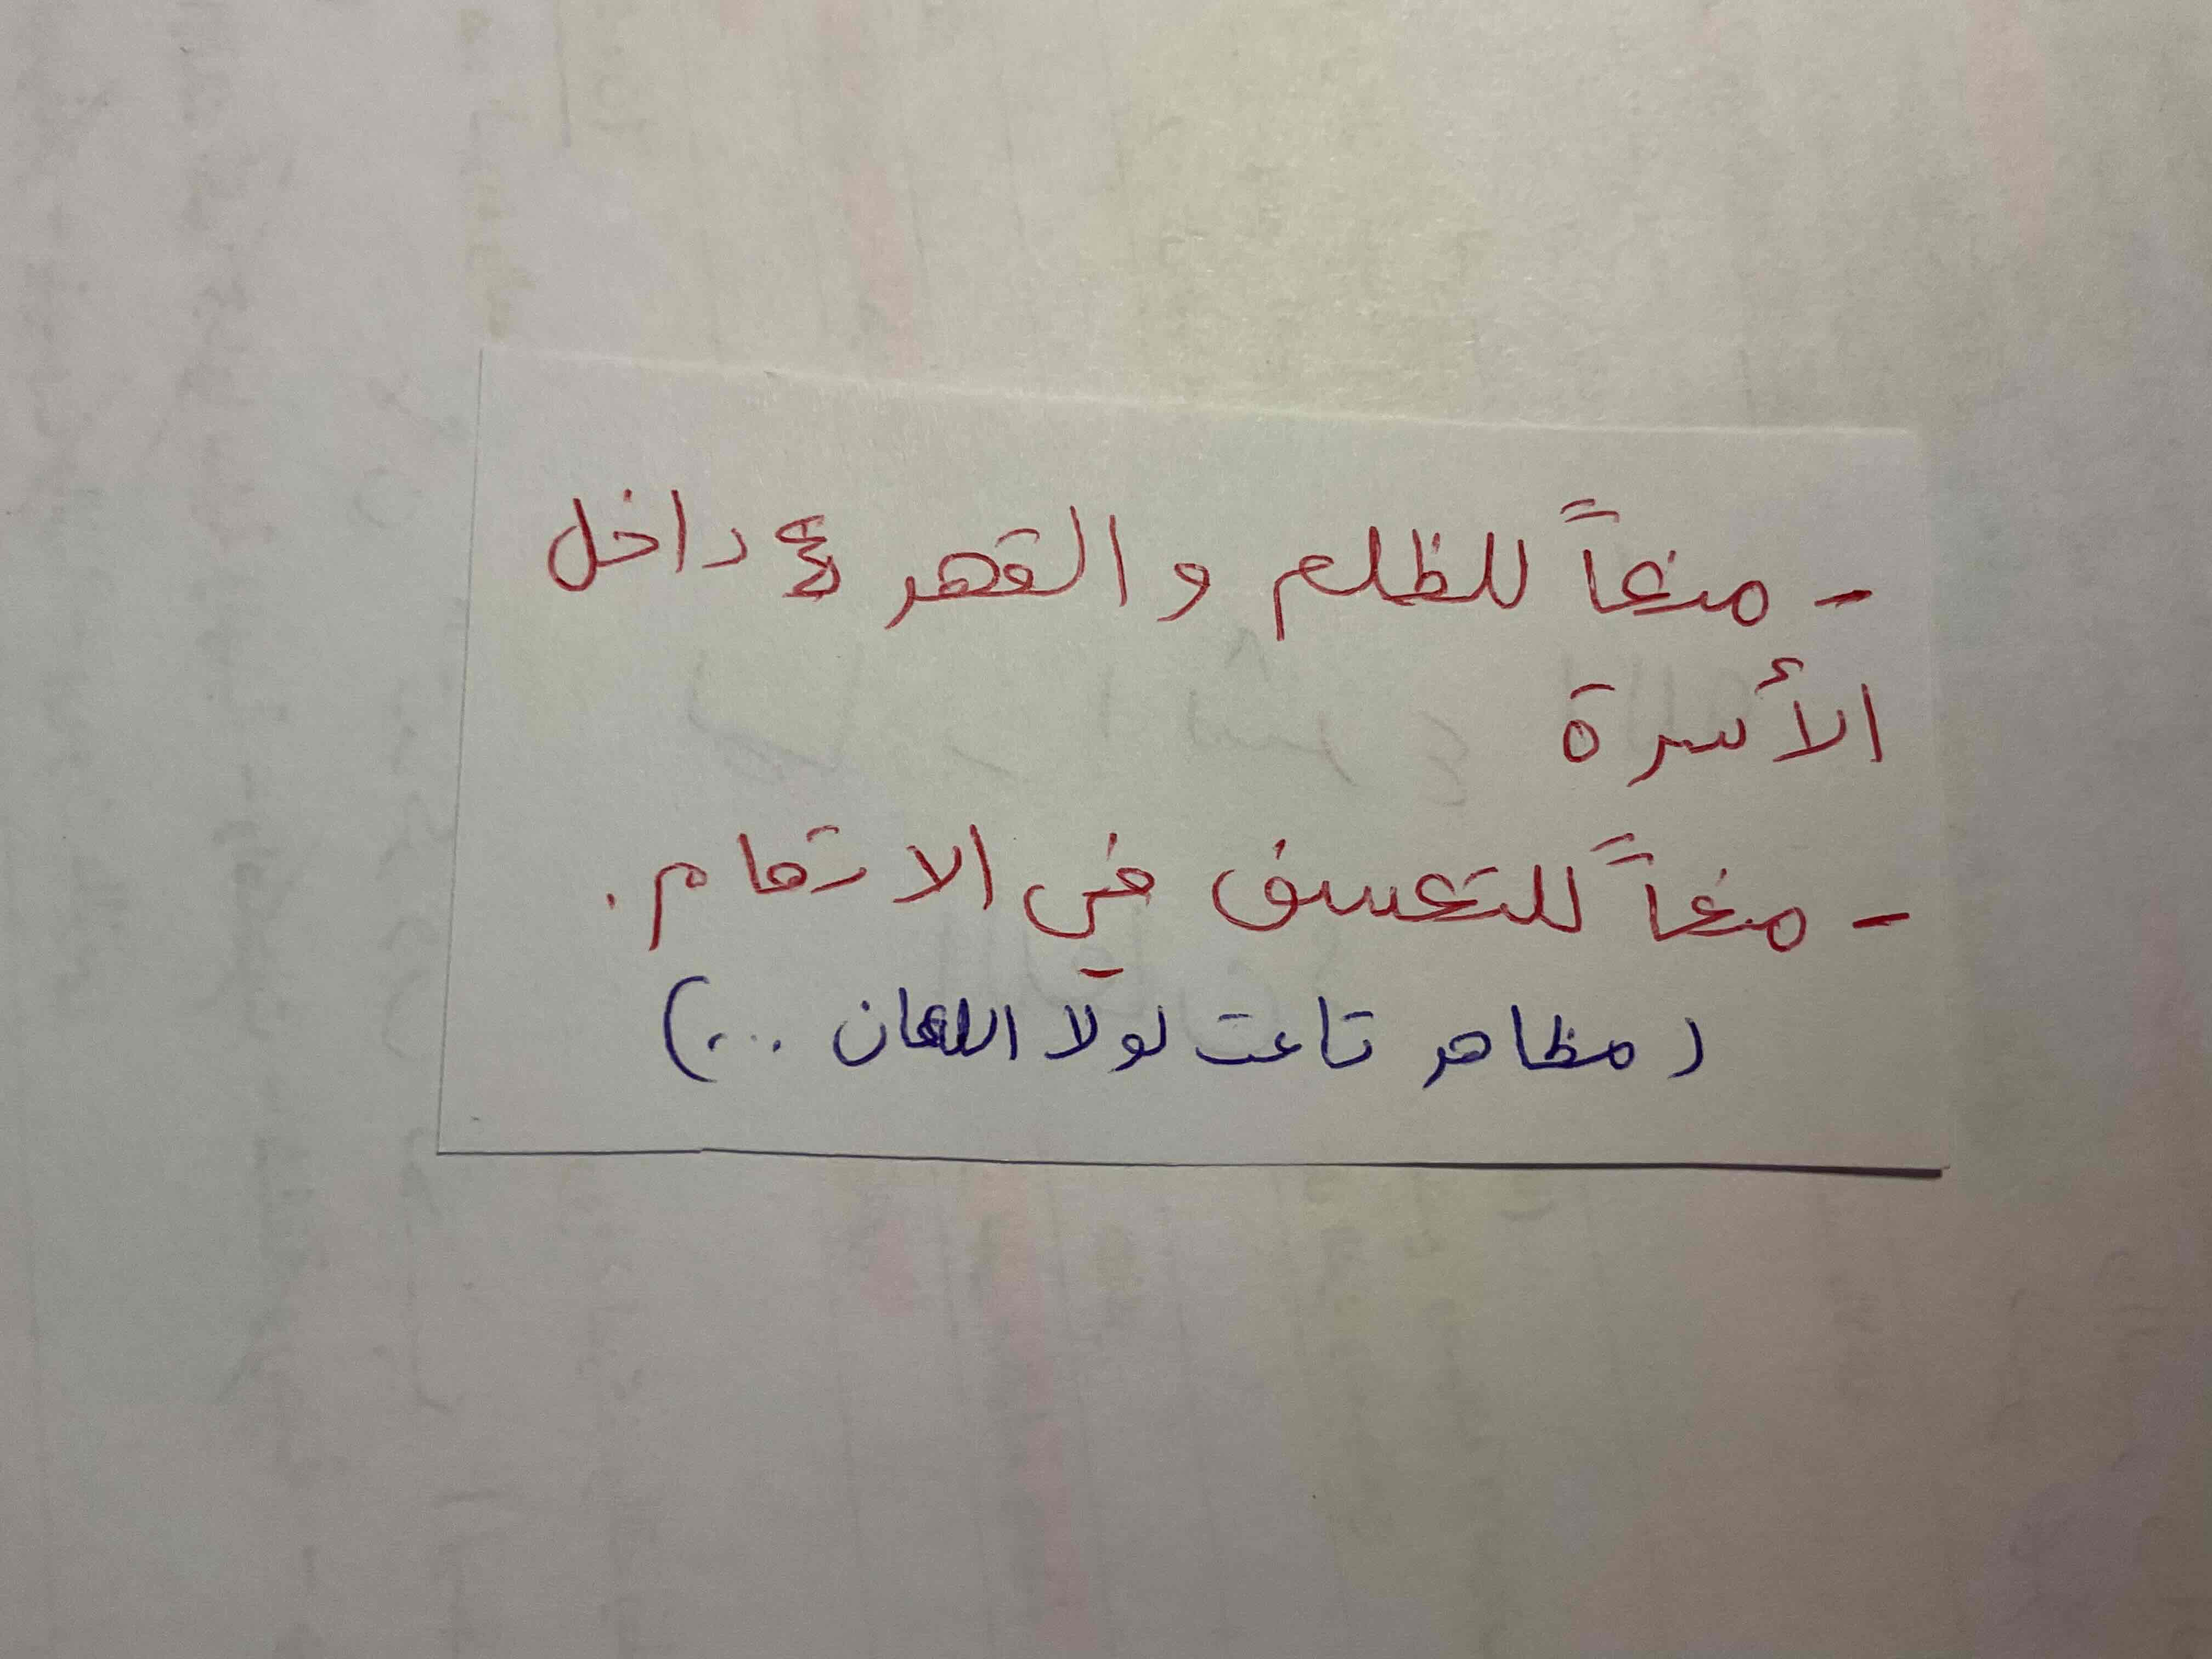 - منعاً للظلم والقهر داخل
الأسرة
- منعاً للتعسف في الاتهام.
(مظاهر تاعت لولا اللعان ...)